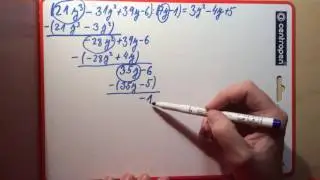 (21y³ - 31y² + 39y - 6) : (7y - 1) = 3y² - 4y + 5
-(21y³ - 3y²)
-28y² + 39y - 6
-(-28y² + 4y)
35y - 6
-(35y - 5)
-1
centropen